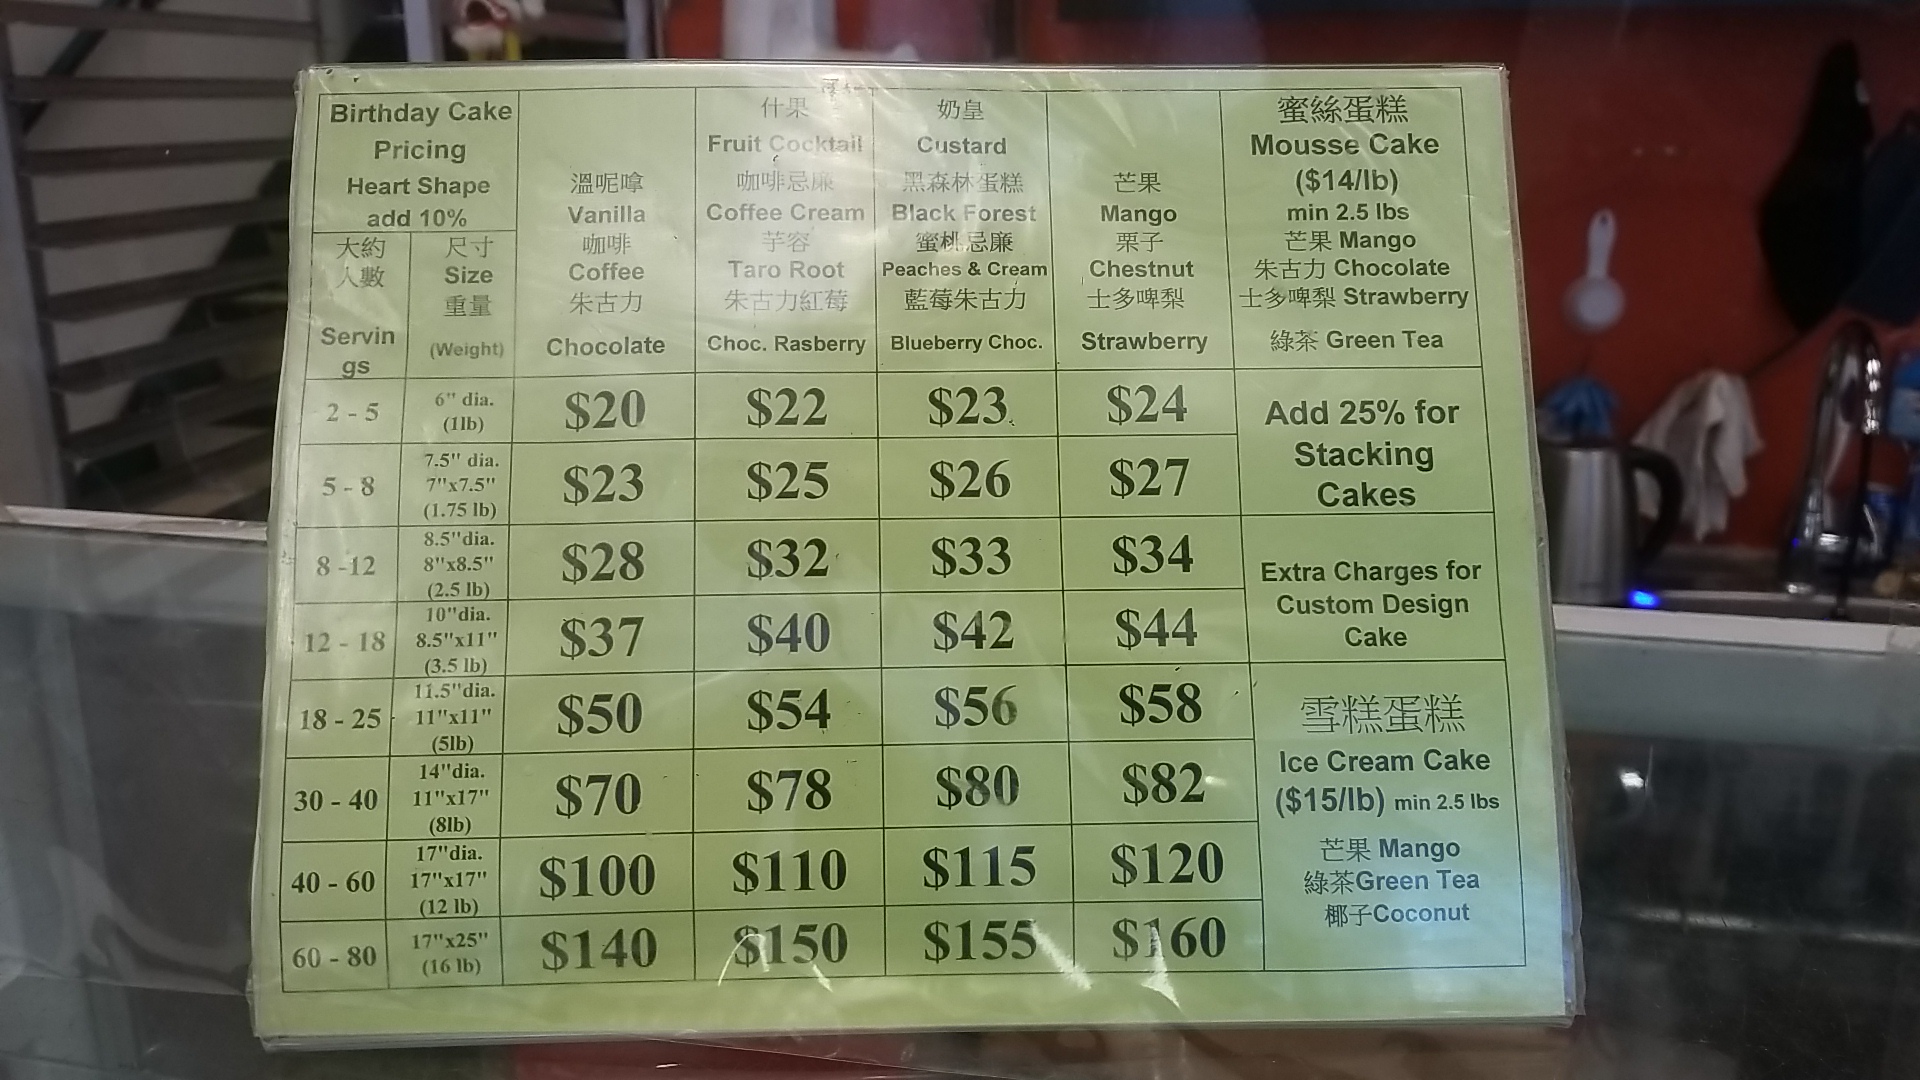 Birthday Cake
Pricing
Heart Shape
add 10%
大約
人數
Servin
gs
尺寸
Size
重量
(Weight)
溫呢嗱
Vanilla
咖啡
Coffee
朱古力
Chocolate
什果
Fruit Cocktail
咖啡忌廉
Coffee Cream
芋容
Taro Root
朱古力紅莓
Choc. Rasberry
奶皇
Custard
黑森林蛋糕
Black Forest
蜜桃忌廉
Peaches & Cream
藍莓朱古力
Blueberry Choc.
芒果
Mango
栗子
Chestnut
士多啤梨
Strawberry
蜜絲蛋糕
Mousse Cake
($14/lb)
min 2.5 lbs
芒果 Mango
朱古力 Chocolate
士多啤梨 Strawberry
綠茶 Green Tea
2 - 5
6" dia.
(1lb)
$20 $22 $23 $24
5 - 8
7.5" dia.
7"x7.5"
(1.75 lb)
$23 $25 $26 $27
8 -12
8.5"dia.
8"x8.5"
(2.5 lb)
$28 $32 $33 $34
12 - 18
10"dia.
8.5"x11"
(3.5 lb)
$37 $40 $42 $44
18 - 25
11.5"dia.
11"x11"
(5lb)
$50 $54 $56 $58
30 - 40
14"dia.
11"x17"
(8lb)
$70 $78 $80 $82
40 - 60
17"dia.
17"x17"
(12 lb)
$100 $110 $115 $120
60 - 80
17"x25"
(16 lb)
$140 $150 $155 $160
Add 25% for
Stacking
Cakes
Extra Charges for
Custom Design
Cake
雪糕蛋糕
Ice Cream Cake
($15/lb) min 2.5 lbs
芒果 Mango
綠茶Green Tea
椰子Coconut